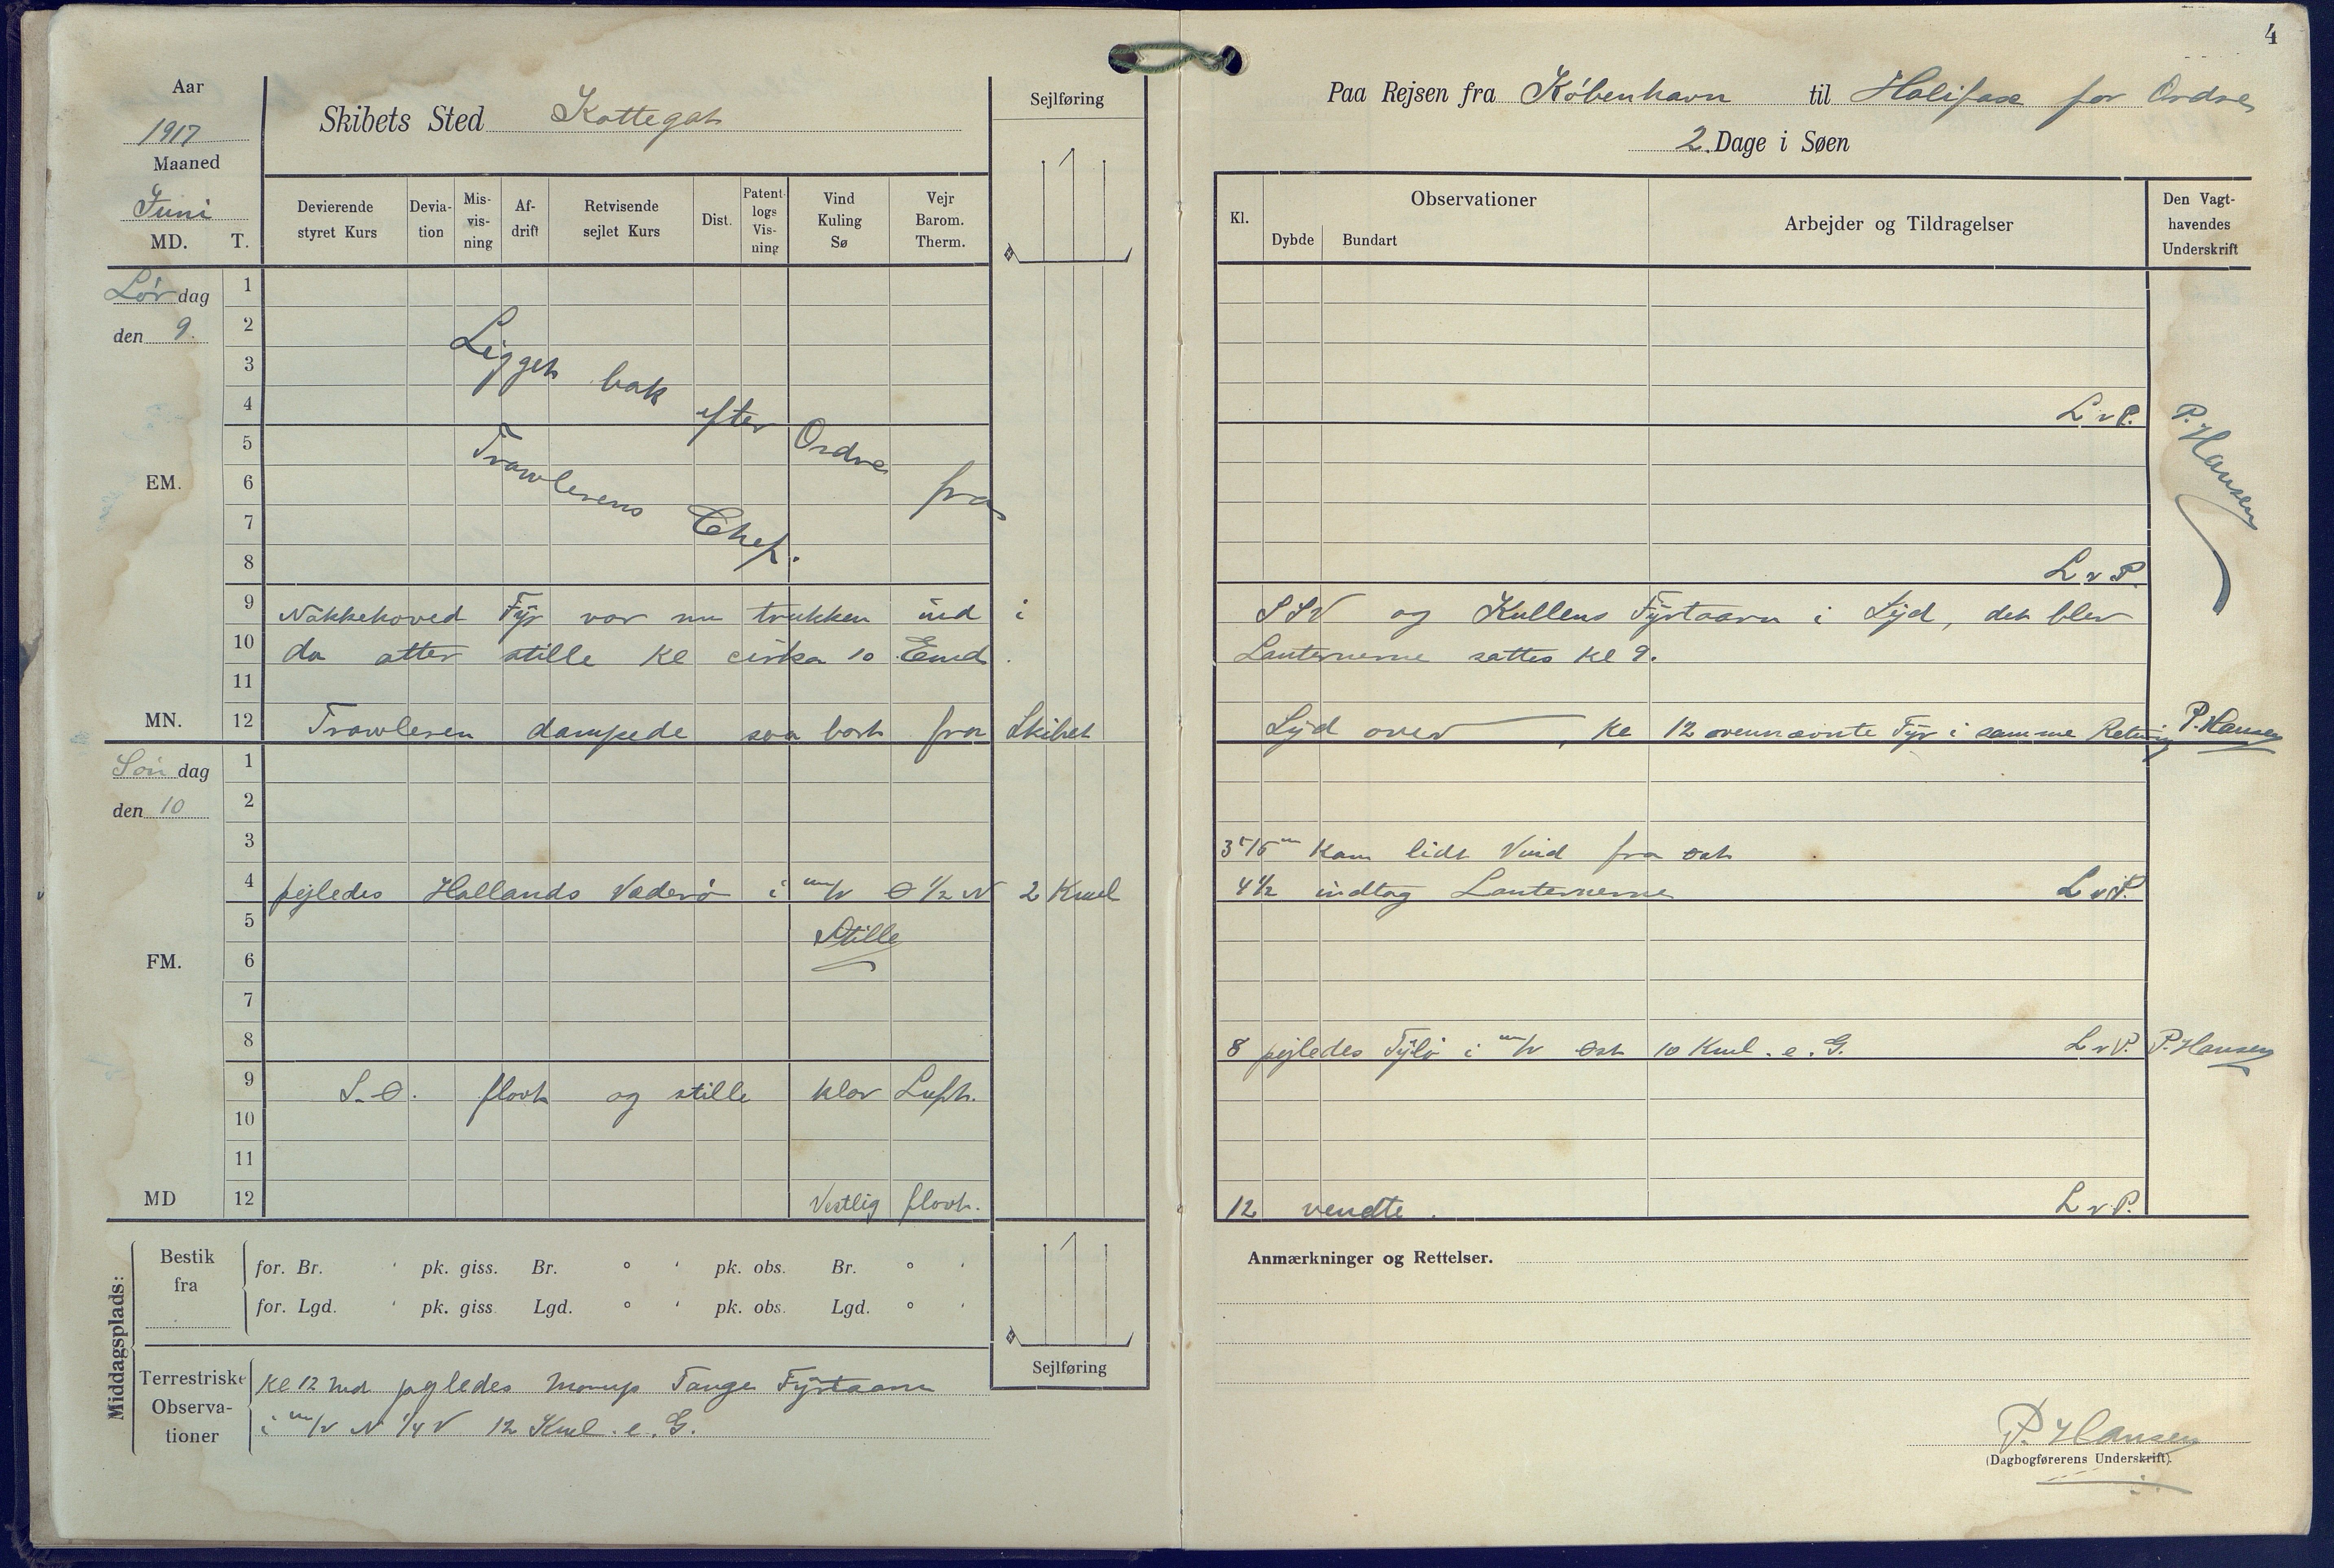 4
Aar
1917
Maaned
Juni
MD. T.
Skibets Sted Kattegat
Sejlføring
Devierende styret Kurs
Devia-tion
Mis-vis-ning
Af-drift
Retvisende sejlet Kurs
Dist.
Patent-logs Vis-ning
Vind Kuling Sø
Vejr Barom. Therm.
Lør dag
den 9.
1
2
3
4
5
EM. 6
7
8
9
10
11
MN. 12
Ligget bak efter Ordre fra
Trawlerens Chef.
Nakkehoved Fyr var nu trukken ind i
da atter stille Kl cirka 10 Emd.
Trawleren dampede saa bort fra Skibet
Søn dag
den 10
1
2
3
4
pejledes Hallands Vaderø i m/v Ø 1/2 N 2 Kml
5
Stille
FM. 6
7
8
9
S.Ø. flovt og stille klar Luft.
10
11
MD 12
Vestlig flovt.
Middagsplads:
Bestik fra
for. Br. ' pk. giss. Br. ° ' pk. obs. Br. ° '
for. Lgd. ' pk. giss. Lgd. ° ' pk. obs. Lgd. ° '
Sejlføring
Terrestriske Observa-tioner
Kl 12 Md pejledes Morups Tange Fyrtaarn
i m/v N 1/4 V 12 Kml. e. G.
Paa Rejsen fra København til Halifax for Ordre
2. Dage i Søen
Kl.
Observationer
Dybde Bundart
Arbejder og Tildragelser
Den Vagt-havendes Underskrift
L v P.
P. Hansen
L v P.
SSV og Kullens Fyrtaarn i Syd, det blev
Lanternerne sattes Kl 9.
Syd over, Kl 12 ovennævnte Fyr i samme Retning P. Hansen
3 t 15 m Kam lidt Vind fra ost
4 1/2 indtog Lanternerne L v P.
8 pejledes Tylø i m/v Øst 10 Kml. e. G. L v P. P. Hansen
12 vendte. L v P.
Anmærkninger og Rettelser.
P. Hansen
(Dagbogførerens Underskrift).